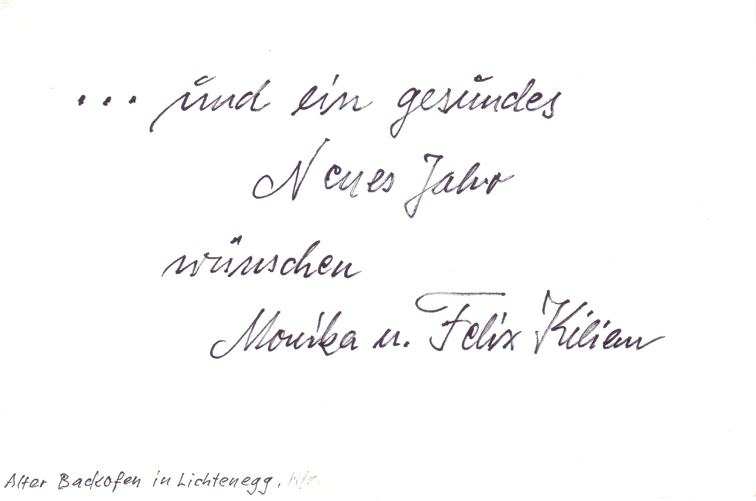 ... und ein gesundes
Neues Jahr
wünschen
Monika u. Felix Kilian
Alter Backofen in Lichtenegg,